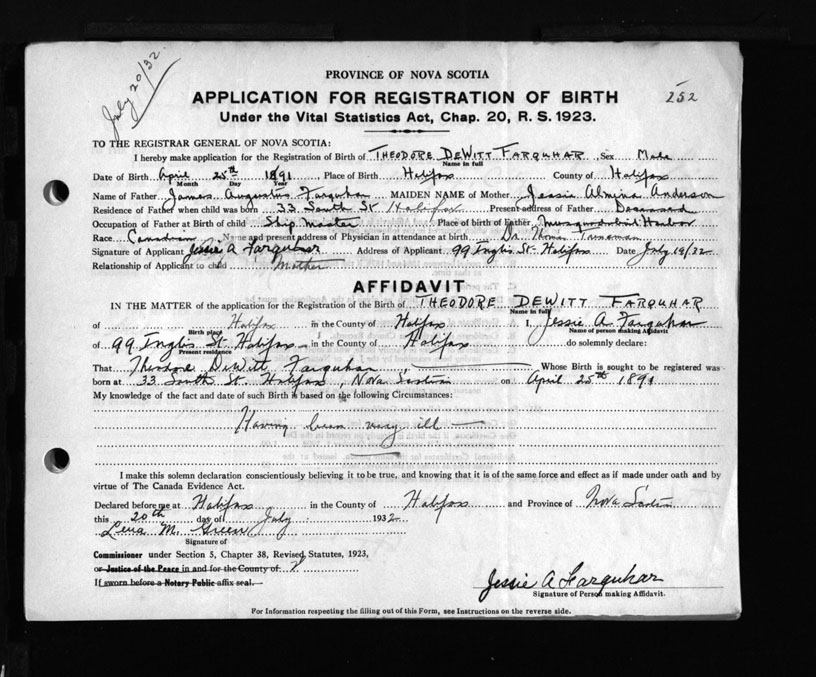 July 20/32
PROVINCE OF NOVA SCOTIA
APPLICATION FOR REGISTRATION OF BIRTH
252
Under the Vital Statistics Act, Chap. 20, R. S. 1923.
TO THE REGISTRAR GENERAL OF NOVA SCOTIA:
I hereby make application for the Registration of Birth of THEODORE DEWITT FARQUHAR, Sex Male
Name in full
Date of Birth April 25th 1891 Place of Birth Halifax County of Halifax
Month Day Year
Name of Father James Augustus Farquhar MAIDEN NAME of Mother Jessie Almina Anderson
Residence of Father when child was born 33 South St Halifax Present address of Father Deceased
Occupation of Father at Birth of child Ship Master Place of birth of Father Musquodoboit Harbor
Race Canadian Name and present address of Physician in attendance at birth Dr. Thomas Trenaman
Signature of Applicant Jessie A Farquhar Address of Applicant 99 Inglis St. Halifax Date July 19/32
Relationship of Applicant to child Mother
AFFIDAVIT
IN THE MATTER of the application for the Registration of the Birth of THEODORE DEWITT FARQUHAR
Name in full
of Halifax in the County of Halifax I, Jessie A. Farquhar
Birth place Name of person making Affidavit
of 99 Inglis St. Halifax in the County of Halifax do solemnly declare:
Present residence
That Theodore DeWitt Farquhar Whose Birth is sought to be registered was
born at 33 South St. Halifax, Nova Scotia on April 25th 1891
My knowledge of the fact and date of such Birth is based on the following Circumstances:
Having been very ill
I make this solemn declaration conscientiously believing it to be true, and knowing that it is of the same force and effect as if made under oath and by
virtue of The Canada Evidence Act.
Declared before me at Halifax in the County of Halifax and Province of Nova Scotia
this 20th day of July 1932
Lena M. Green
Signature of
Commissioner under Section 5, Chapter 38, Revised Statutes, 1923,
or Justice of the Peace in and for the County of
If sworn before a Notary Public affix seal.
Jessie A Farquhar
Signature of Person making Affidavit.
For Information respecting the filling out of this Form, see Instructions on the reverse side.